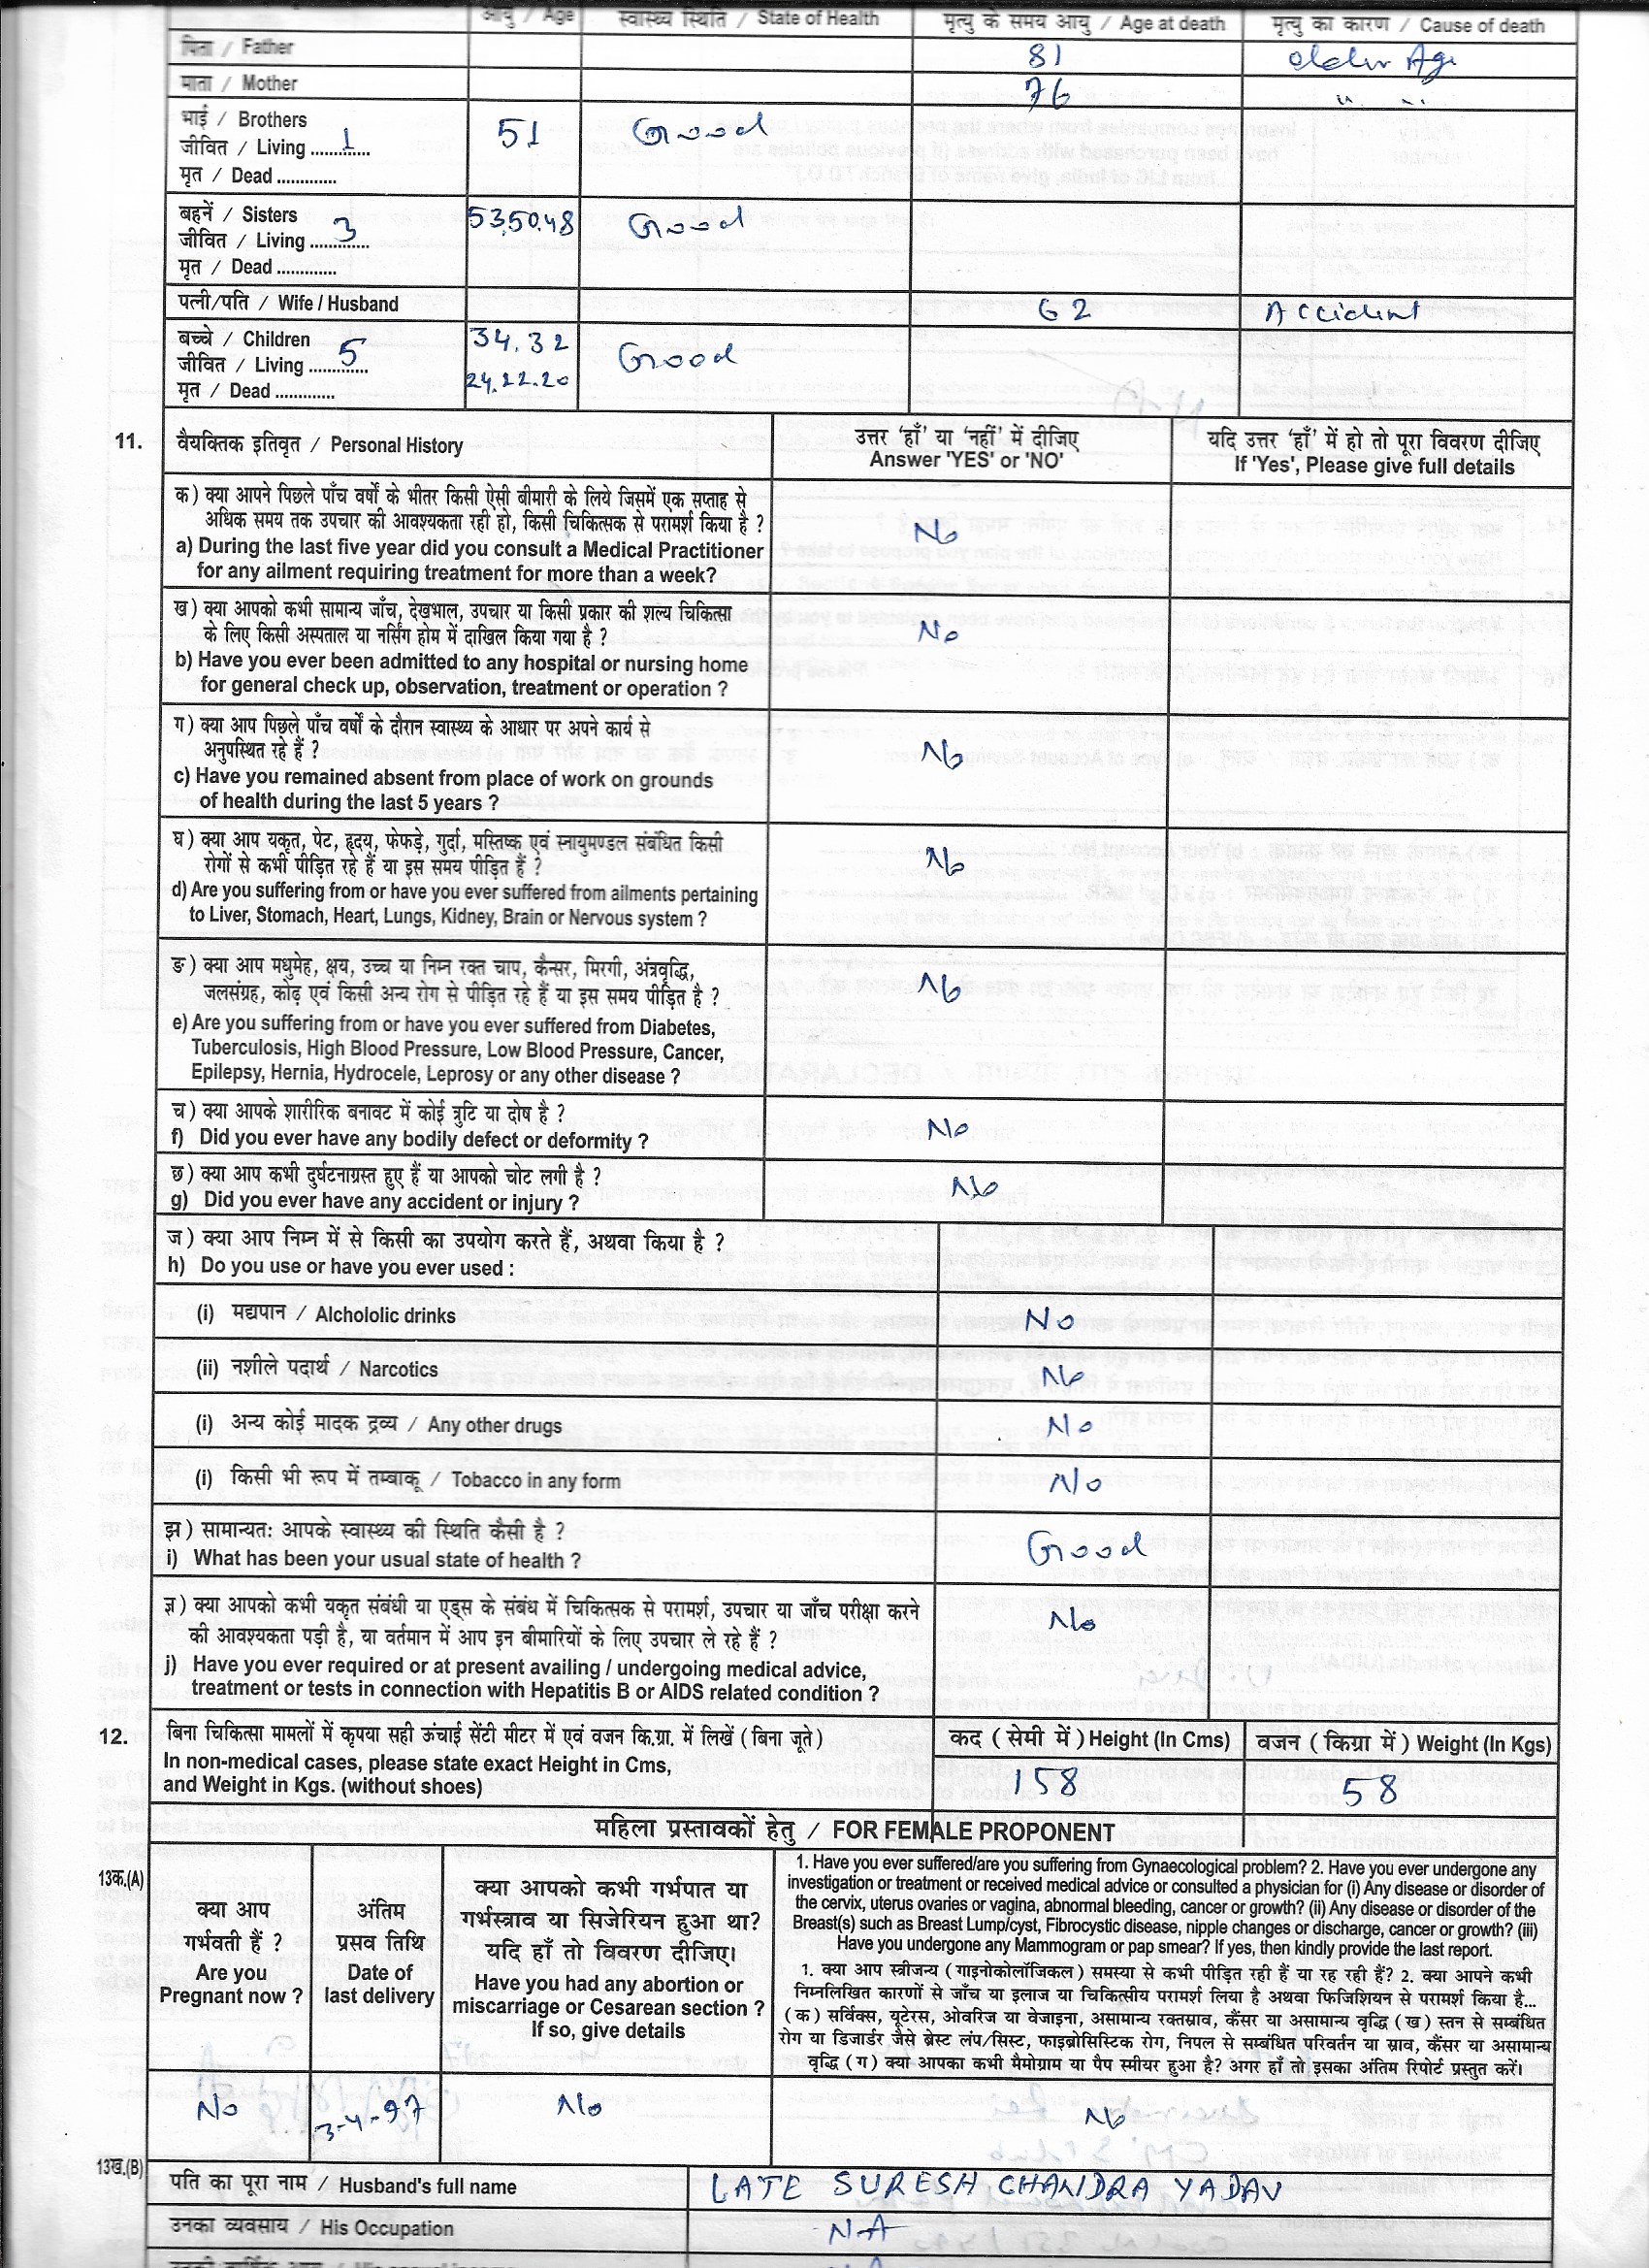 आयु / Age स्वास्थ्य स्थिति / State of Health मृत्यु के समय आयु / Age at death मृत्यु का कारण / Cause of death
पिता / Father 81 older Age
माता / Mother 76 " "
भाई / Brothers
जीवित / Living ............. 1 51 Good
मृत / Dead .............
बहनें / Sisters
जीवित / Living ............. 3 53,50,48 Good
मृत / Dead .............
पत्नी/पति / Wife / Husband 62 Accident
बच्चे / Children 34.32
जीवित / Living ............. 5 Good
मृत / Dead ............. 24.22.20
11. वैयक्तिक इतिवृत / Personal History
उत्तर 'हाँ' या 'नहीं' में दीजिए
Answer 'YES' or 'NO'
यदि उत्तर 'हाँ' में हो तो पूरा विवरण दीजिए
If 'Yes', Please give full details
क) क्या आपने पिछले पाँच वर्षों के भीतर किसी ऐसी बीमारी के लिये जिसमें एक सप्ताह से
अधिक समय तक उपचार की आवश्यकता रही हो, किसी चिकित्सक से परामर्श किया है ?
a) During the last five year did you consult a Medical Practitioner
for any ailment requiring treatment for more than a week?
No
ख) क्या आपको कभी सामान्य जाँच, देखभाल, उपचार या किसी प्रकार की शल्य चिकित्सा
के लिए किसी अस्पताल या नर्सिंग होम में दाखिल किया गया है ?
b) Have you ever been admitted to any hospital or nursing home
for general check up, observation, treatment or operation ?
No
ग) क्या आप पिछले पाँच वर्षों के दौरान स्वास्थ्य के आधार पर अपने कार्य से
अनुपस्थित रहे हैं ?
c) Have you remained absent from place of work on grounds
of health during the last 5 years ?
No
घ) क्या आप यकृत, पेट, हृदय, फेफड़े, गुर्दा, मस्तिष्क एवं स्नायुमण्डल संबंधित किसी
रोगों से कभी पीड़ित रहे हैं या इस समय पीड़ित हैं ?
d) Are you suffering from or have you ever suffered from ailments pertaining
to Liver, Stomach, Heart, Lungs, Kidney, Brain or Nervous system ?
No
ङ) क्या आप मधुमेह, क्षय, उच्च या निम्न रक्त चाप, कैन्सर, मिरगी, अंत्रवृद्धि,
जलसंग्रह, कोढ़ एवं किसी अन्य रोग से पीड़ित रहे हैं या इस समय पीड़ित है ?
e) Are you suffering from or have you ever suffered from Diabetes,
Tuberculosis, High Blood Pressure, Low Blood Pressure, Cancer,
Epilepsy, Hernia, Hydrocele, Leprosy or any other disease ?
No
च) क्या आपके शारीरिक बनावट में कोई त्रुटि या दोष है ?
f) Did you ever have any bodily defect or deformity ?
No
छ) क्या आप कभी दुर्घटनाग्रस्त हुए हैं या आपको चोट लगी है ?
g) Did you ever have any accident or injury ?
No
ज) क्या आप निम्न में से किसी का उपयोग करते हैं, अथवा किया है ?
h) Do you use or have you ever used :
(i) मद्यपान / Alchololic drinks No
(ii) नशीले पदार्थ / Narcotics No
(i) अन्य कोई मादक द्रव्य / Any other drugs No
(i) किसी भी रूप में तम्बाकू / Tobacco in any form No
झ) सामान्यतः आपके स्वास्थ्य की स्थिति कैसी है ?
i) What has been your usual state of health ?
Good
ञ) क्या आपको कभी यकृत संबंधी या एड्स के संबंध में चिकित्सक से परामर्श, उपचार या जाँच परीक्षा करने
की आवश्यकता पड़ी है, या वर्तमान में आप इन बीमारियों के लिए उपचार ले रहे हैं ?
j) Have you ever required or at present availing / undergoing medical advice,
treatment or tests in connection with Hepatitis B or AIDS related condition ?
No
12. बिना चिकित्सा मामलों में कृपया सही ऊंचाई सेंटी मीटर में एवं वजन कि.ग्रा. में लिखें (बिना जूते)
In non-medical cases, please state exact Height in Cms,
and Weight in Kgs. (without shoes)
कद (सेमी में) Height (In Cms) वजन (किग्रा में) Weight (In Kgs)
158 58
महिला प्रस्तावकों हेतु / FOR FEMALE PROPONENT
13क.(A)
क्या आप
गर्भवती हैं ?
Are you
Pregnant now ?
अंतिम
प्रसव तिथि
Date of
last delivery
क्या आपको कभी गर्भपात या
गर्भस्त्राव या सिजेरियन हुआ था?
यदि हाँ तो विवरण दीजिए।
Have you had any abortion or
miscarriage or Cesarean section ?
If so, give details
1. Have you ever suffered/are you suffering from Gynaecological problem? 2. Have you ever undergone any
investigation or treatment or received medical advice or consulted a physician for (i) Any disease or disorder of
the cervix, uterus ovaries or vagina, abnormal bleeding, cancer or growth? (ii) Any disease or disorder of the
Breast(s) such as Breast Lump/cyst, Fibrocystic disease, nipple changes or discharge, cancer or growth? (iii)
Have you undergone any Mammogram or pap smear? If yes, then kindly provide the last report.
1. क्या आप स्त्रीजन्य (गाइनोकोलॉजिकल) समस्या से कभी पीड़ित रही हैं या रह रही हैं? 2. क्या आपने कभी
निम्नलिखित कारणों से जाँच या इलाज या चिकित्सीय परामर्श लिया है अथवा फिजिशियन से परामर्श किया है...
(क) सर्विक्स, यूटेरस, ओवरिज या वेजाइना, असामान्य रक्तस्राव, कैंसर या असामान्य वृद्धि (ख) स्तन से सम्बंधित
रोग या डिजार्डर जैसे ब्रेस्ट लंप/सिस्ट, फाइब्रोसिस्टिक रोग, निपल से सम्बंधित परिवर्तन या स्राव, कैंसर या असामान्य
वृद्धि (ग) क्या आपका कभी मैमोग्राम या पैप स्मीयर हुआ है? अगर हाँ तो इसका अंतिम रिपोर्ट प्रस्तुत करें।
No 3-4-97 No No
13ख.(B) पति का पूरा नाम / Husband's full name LATE SURESH CHANDRA YADAV
उनका व्यवसाय / His Occupation N-A